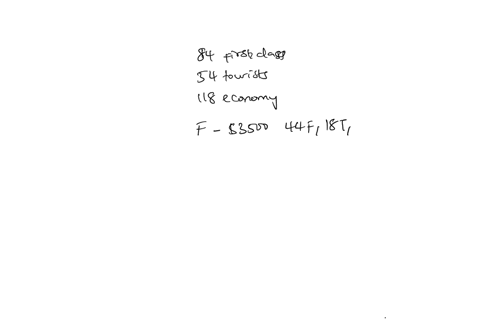 84 first class
54 tourists
118 economy
F - $3500 44F, 18T,